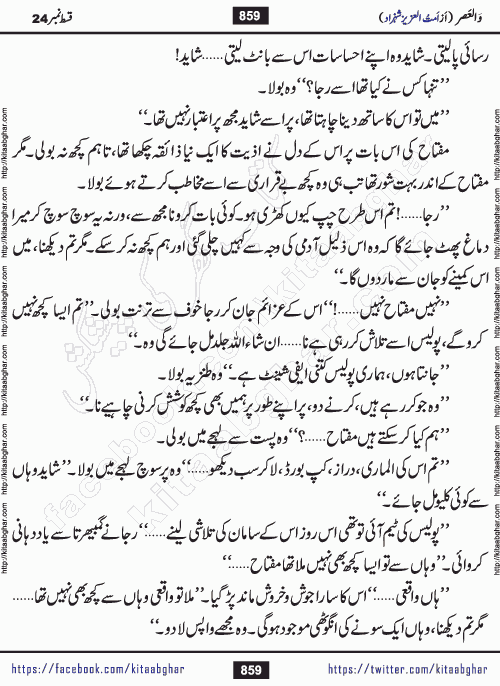 قسط نمبر 24
859
وَالعَصر (اَز اَمتُ العزیز شہزاد)
رسائی پا لیتی۔ شاید وہ اپنے احساسات اس سے بانٹ لیتی......شاید!
”تنہا کس نے کیا تھا اسے رجا؟“ وہ بولا۔
”میں تو اس کا ساتھ دینا چاہتا تھا، پر اسے شاید مجھ پر اعتبار نہیں تھا۔“
مفتاح کی اس بات پر اس کے دل نے اذیت کا ایک نیا ذائقہ چکھا تھا، تاہم کچھ نہ بولی۔ مگر
مفتاح کے اندر بہت شور تھا تب ہی وہ کچھ بے قراری سے اسے مخاطب کرتے ہوئے بولا۔
”رجا......! تم اس طرح چپ کیوں کھڑی ہو۔ کوئی بات کرو نا مجھ سے، ورنہ یہ سوچ سوچ کر میرا
دماغ پھٹ جائے گا کہ وہ اس ذلیل آدمی کی وجہ سے کہیں چلی گئی اور ہم کچھ نہ کر سکے۔ مگر تم دیکھنا، میں
اس کمینے کو جان سے مار دوں گا۔“
”نہیں مفتاح نہیں......!“ اس کے عزائم جان کر رجا خوف سے ترنت بولی۔ ”تم ایسا کچھ نہیں
کرو گے، پولیس اسے تلاش کر رہی ہے نا......ان شاء اللہ جلد مل جائے گی وہ۔“
”جانتا ہوں، ہماری پولیس کتنی ایفی شینٹ ہے۔“ وہ طنزیہ بولا۔
”وہ جو کر رہے ہیں، کرنے دو، پر اپنے طور پر ہمیں بھی کچھ کوشش کرنی چاہیے نا۔“
”ہم کیا کر سکتے ہیں مفتاح......؟“ وہ پست سے لہجے میں بولی۔
”تم اس کی الماری، دراز، کپ بورڈ، لاکر سب دیکھو......“ وہ پر سوچ لہجے میں بولا۔ ”شاید وہاں
سے کوئی کلیو مل جائے۔“
”پولیس کی ٹیم آئی تو تھی اس روز اس کے سامان کی تلاشی لینے......“ رجا نے گمبھیرتا سے یاد دہانی
کروائی۔ ”وہاں سے تو ایسا کچھ بھی نہیں ملا تھا مفتاح......“
”ہاں واقعی......“ اس کا سارا جوش و خروش ماند پڑ گیا۔ ”ملا تو واقعی وہاں سے کچھ بھی نہیں تھا......
مگر تم دیکھنا، وہاں ایک سونے کی انگوٹھی موجود ہو گی۔ وہ مجھے واپس لا دو۔“
http://kitaabghar.com http://kitaabghar.com http://kitaabghar.com http://kitaabghar.com
https://facebook.com/kitaabghar
859
https://twitter.com/kitaabghar